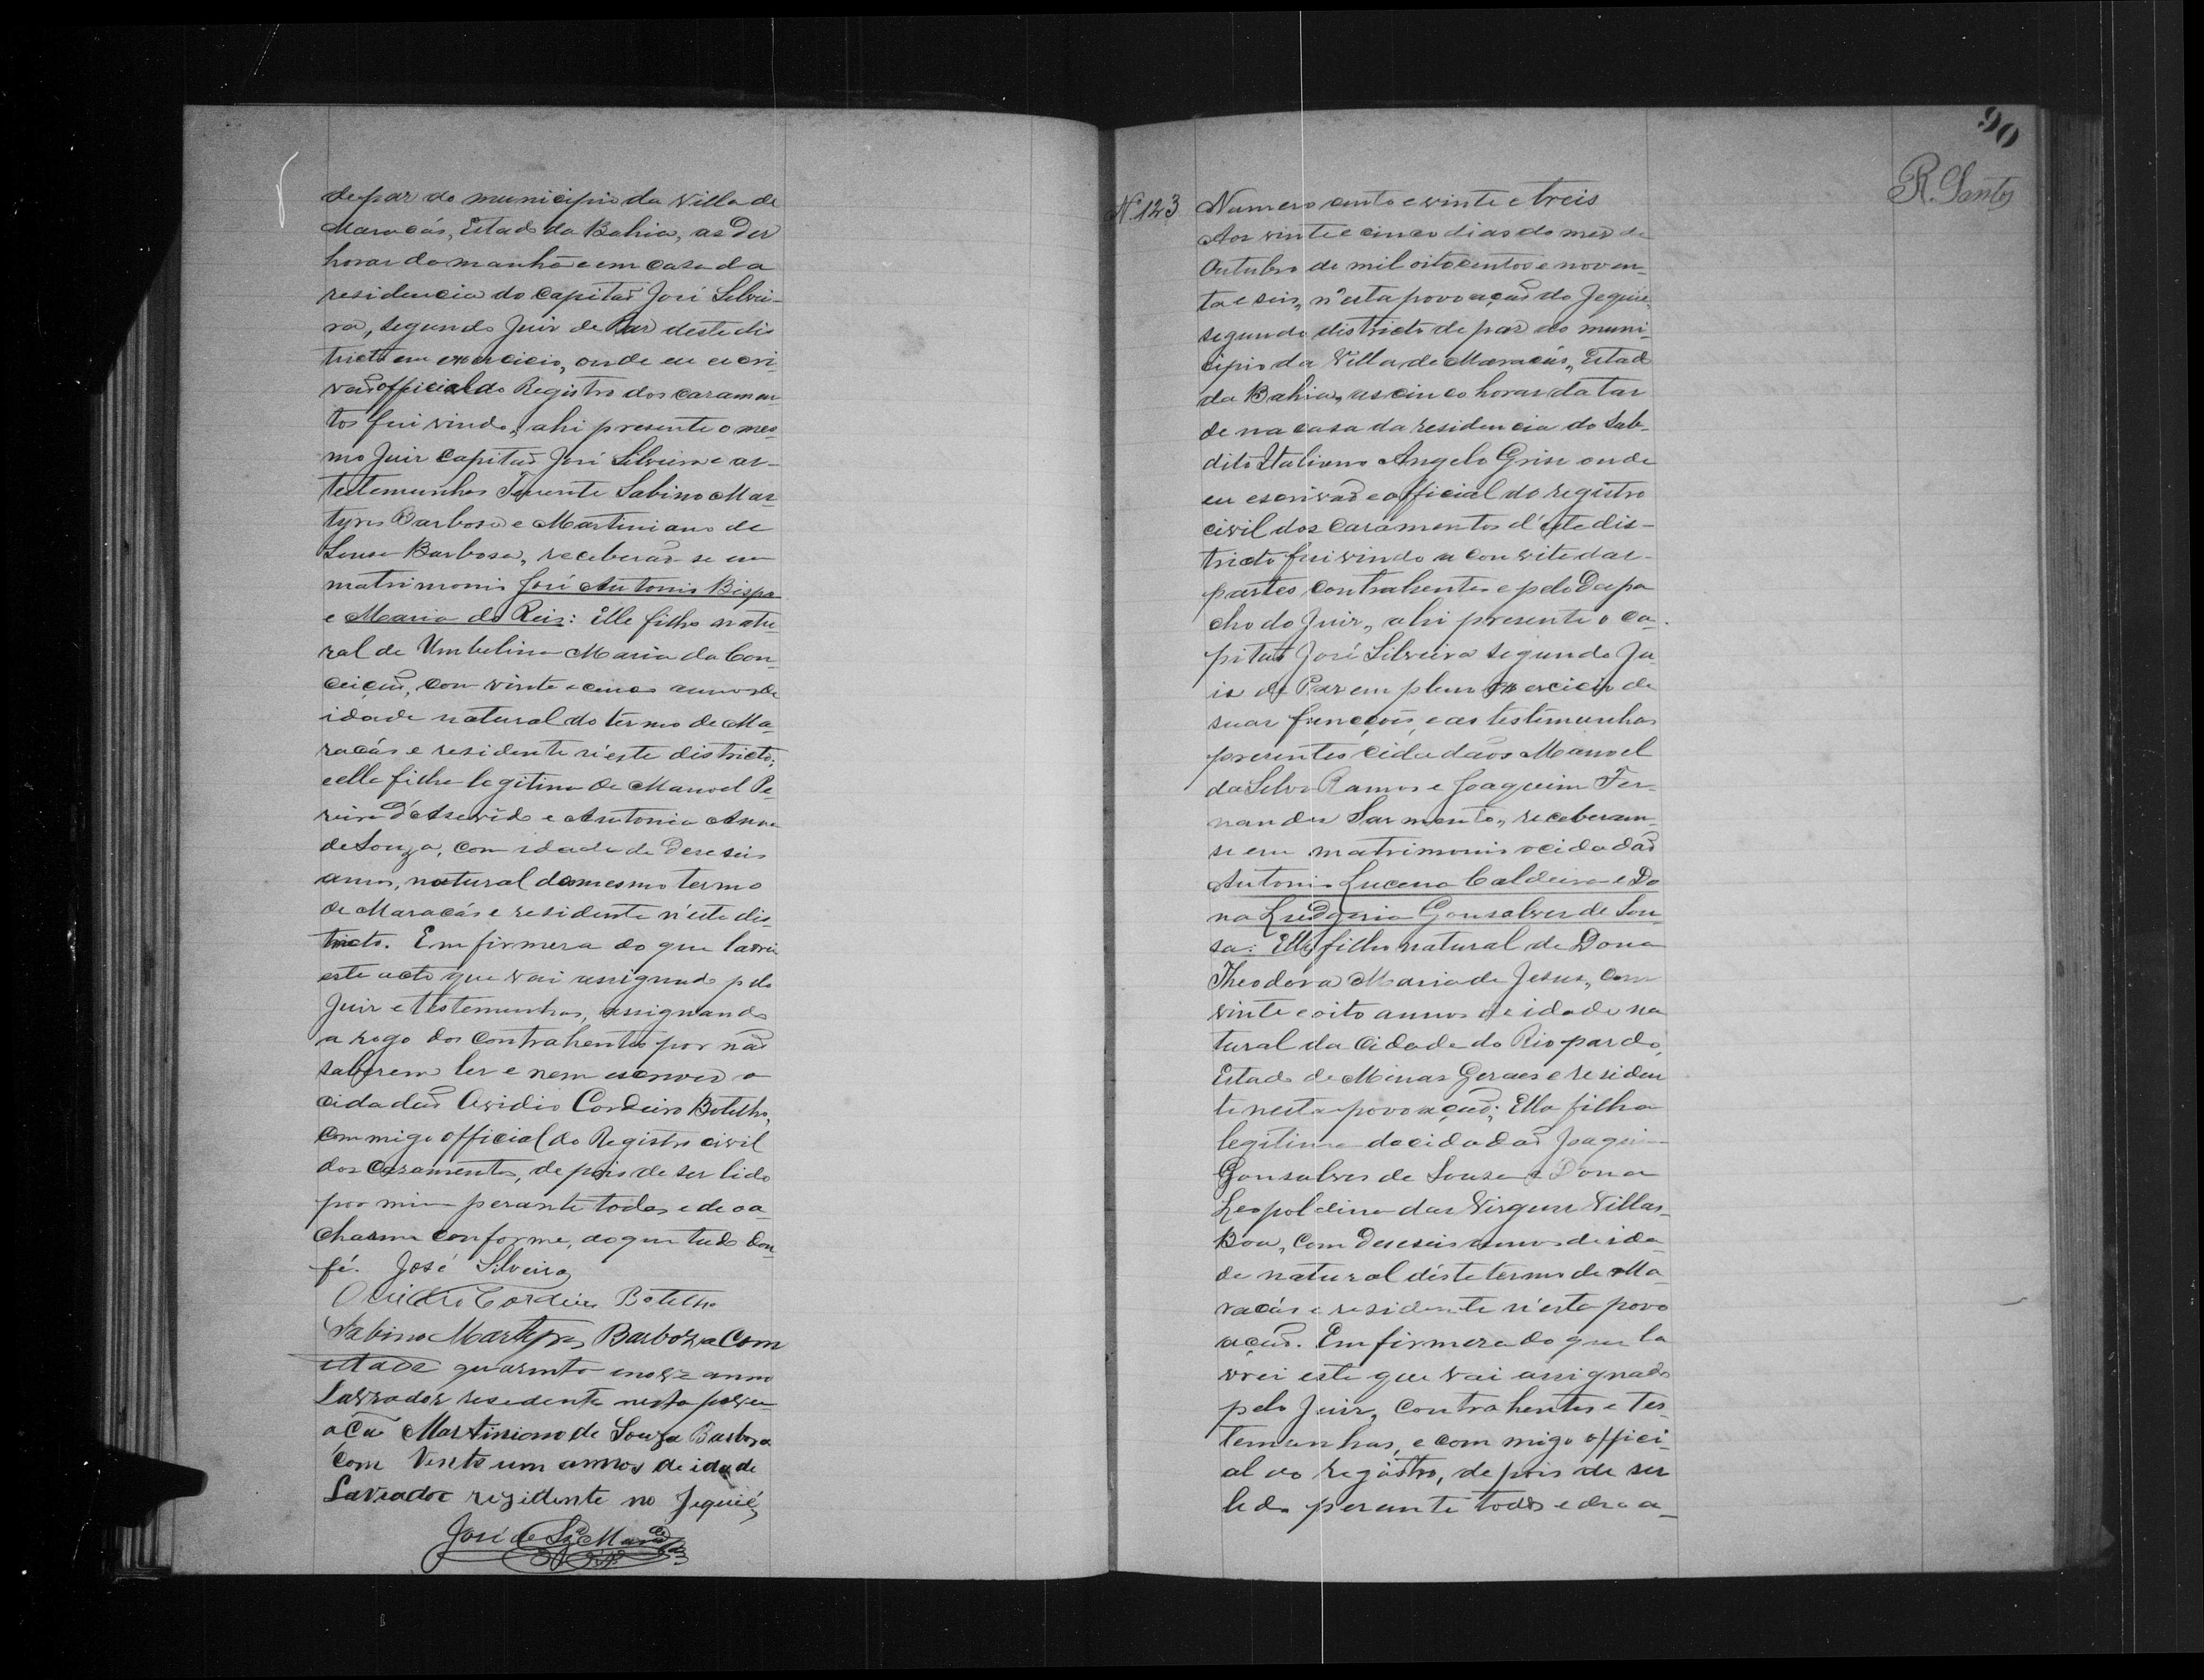 de paz do municipio da Villa de
Maracás, Estado da Bahia, as Dez
horas da manhã e em casa da
residencia do Capitaõ José Silvei-
ra, segundo Juiz de Paz deste dis
tricto em exercicio, onde eu escri
vaõ official do Registro dos casamen
tos fui vindo, ahi presente o mes-
mo Juiz Capitaõ José Silveira e as-
testemunhas Tenente Sabino Mar
tyres Barbosa e Martiniano de
Sousa Barbosa, receberaõ-se em
matrimonio José Antonio Bispo
e Maria do Reis: Elle filho natu-
ral de Umbelina Maria da Con-
ceiçaõ, com vinte e cinco annos de
idade natural do termo de Ma
racás e residente n'este districto;
e ella filha legitima de Manoel Pe-
reira d'Asevêdo e Antonia Anna
de Souza, com idade de dezeseis
annos, natural do mesmo termo
de Maracás e residente n'este dis-
tricto. Em firmeza do que lavrei
este acto que vai assignado pelo
Juiz e testemunhas, assignando
a rogo dos contrahentes por naõ
saberem ler e nem escrever o
cidadaõ Ovidio Cordeiro Botelho,
commigo official do Registro civil
dos Casamentos, depois de ser lido
por mim perante todos e de o a-
charem conforme, do que tudo dou
fé. José Silveira
Ovidio Cordeiro Botelho
Sabino Martyres Barboza Com
idade quarenta e nove anno
Lavrador resedente nesta povo-
açaõ Martiniano de Souza Barboza
Com Vente um annos de idade
Lavrador rezidente no Jequié
José de
90
R. Santos
N. 123 Numero cento e vinte e treis
Aos vinte e cinco dias do mez de
Outubro de mil oitocentos e noven-
ta e seis, n'esta povoaçaõ do Jequié,
segundo districto de paz do muni-
cipio da Villa de Maracás, Estado
da Bahia, as cinco horas da tar
de na casa da residencia do Sub-
dito Italiano Angelo Grisi onde
eu escrivaõ e official do registro
civil dos casamentos d'este dis-
tricto fui vindo a convite das-
partes contrahentes e pelo Despa
cho do Juiz, ahi presente o Ca-
pitaõ José Silveira segundo Ju
is de Paz em pleno exercicio de
suas funcçoẽs, e as testemunhas
presentes cidadaõs Manoel
da Silva Ramos e Joaquim Fer-
nandes Sarmento, receberam-
se em matrimonio o cidadaõ
Antonio Lucena Caldeira e Do
na Liudgeria Gonsalves de Sou-
sa: Elle filho natural de Dona
Theodora Maria de Jesus, com
vinte e oito annos de idade na
tural da Cidade do Rio pardo,
Estado de Minas Geraes e residen
te nesta povoaçaõ; Ella filha
legitima do cidadaõ Joaquim
Gonsalves de Sousa e Dona
Leopoldina das Virgens Villas-
Boa, com deseseis annos de ida
de natural d'este termo de Ma-
racás e residente n'esta povo
açaõ. Em firmeza do que la
vrei este que vai assignado
pelo Juiz, Contrahentes e tes-
temunhas, e com migo offici-
al do registro, depois de ser
lido perante todos e de o a-